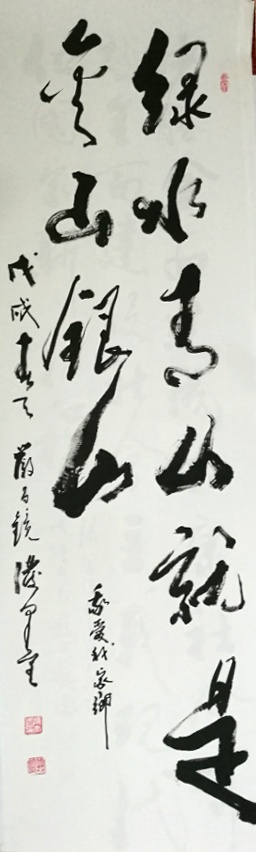 绿水青山就是
金山银山
我爱我家乡
戊戌春天